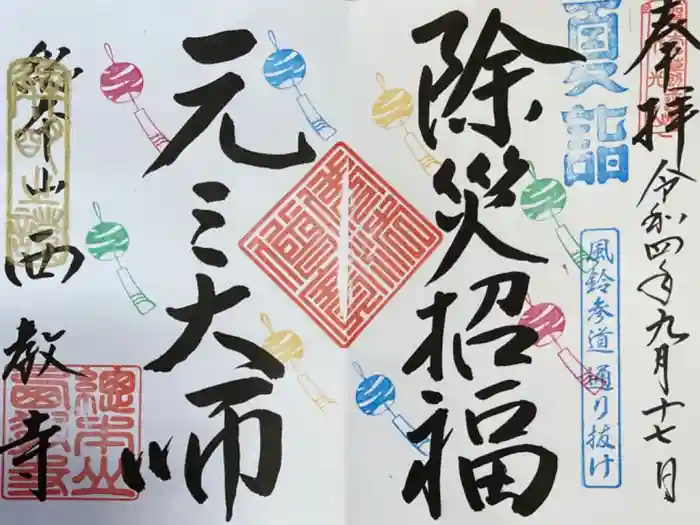 奉拝
令和四年九月十七日
夏詣
風鈴参道 通り抜け
除災招福
元三大師
総本山 西教寺
總本山
西教寺